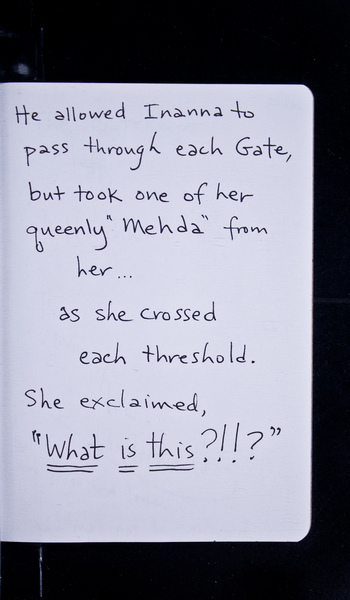 He allowed Inanna to
pass through each Gate,
but took one of her
queenly "Mehda" from
her...
as she crossed
each threshold.
She exclaimed,
"What is this?!!?"